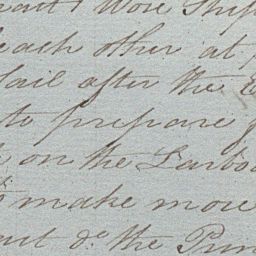 Wore Ship
each other at
sail after the E
to prepare
on the Larbo
to make more
out do. the Prin